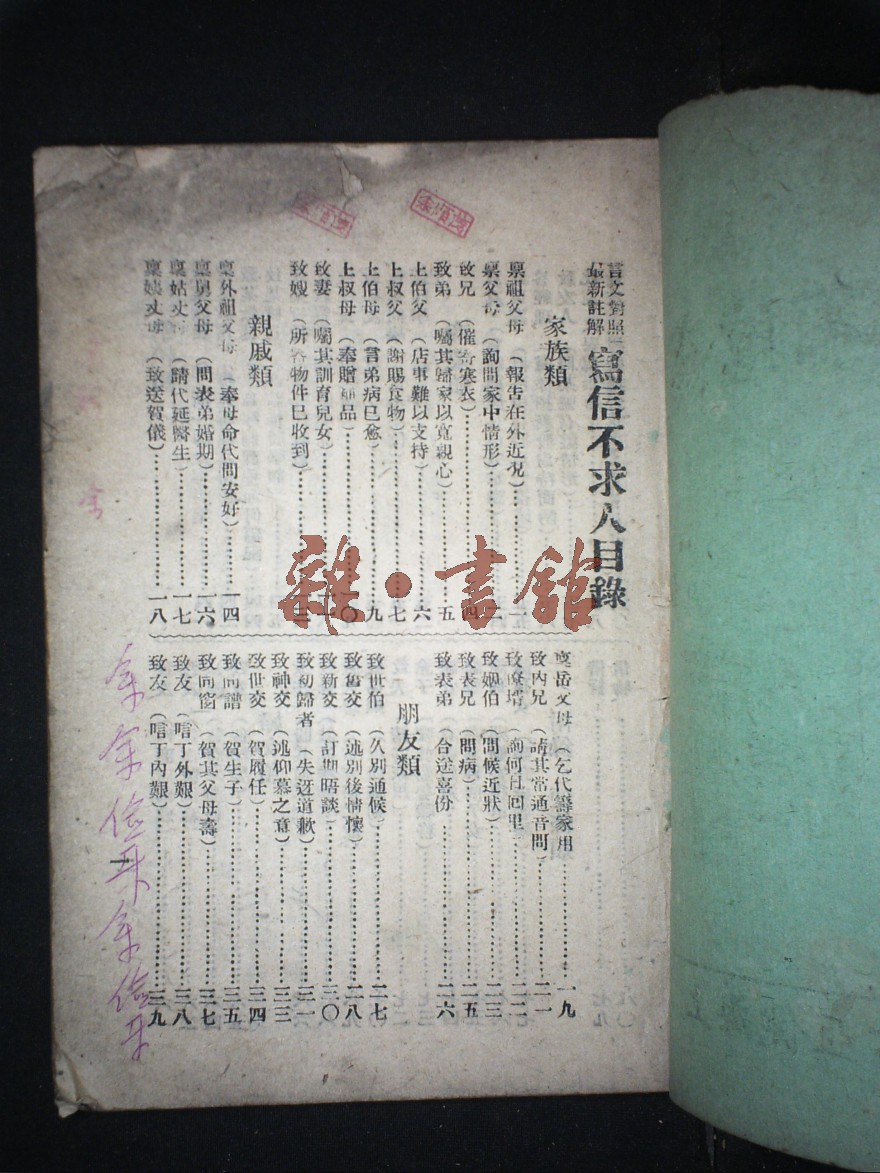 言文對照
最新註解
寫信不求人目錄
家族類
稟祖父母（報告在外近況）
稟父母（詢問家中情形）
致兄（催寄寒衣）……四
致弟（囑其歸家以寬親心）……五
上伯父（店事難以支持）……六
上叔父（謝賜食物）……七
上伯母（言弟病已愈）……九
上叔母（奉贈 品）……一〇
致妻（囑其訓育兒女）
致嫂（所寄物件已收到）
親戚類
稟外祖父母（奉母命代問安好）……一四
稟舅父母（問表弟婚期）……一六
稟姑丈母（請代延醫生）……一七
稟姨丈母（致送賀儀）……一八
稟岳父母（乞代籌家用）……一九
致內兄（請其常通音問）……二一
致棄壻（詢何日回里）……二二
致姻伯（問候近狀）……二三
致表兄（問病）……二五
致表弟（合送喜份）……二六
朋友類
致世伯（久別通候）……二七
致舊交（述別後情懷）……二八
致新交（訂期晤談）……三〇
致初歸者（失迓道歉）……三一
致神交（述仰慕之意）……三三
致世交（賀履任）……三四
致同譜（賀生子）……三五
致同窗（賀其父母壽）……三七
致友（唁丁外艱）……三八
致友（唁丁內艱）……三九
一
雜·書館